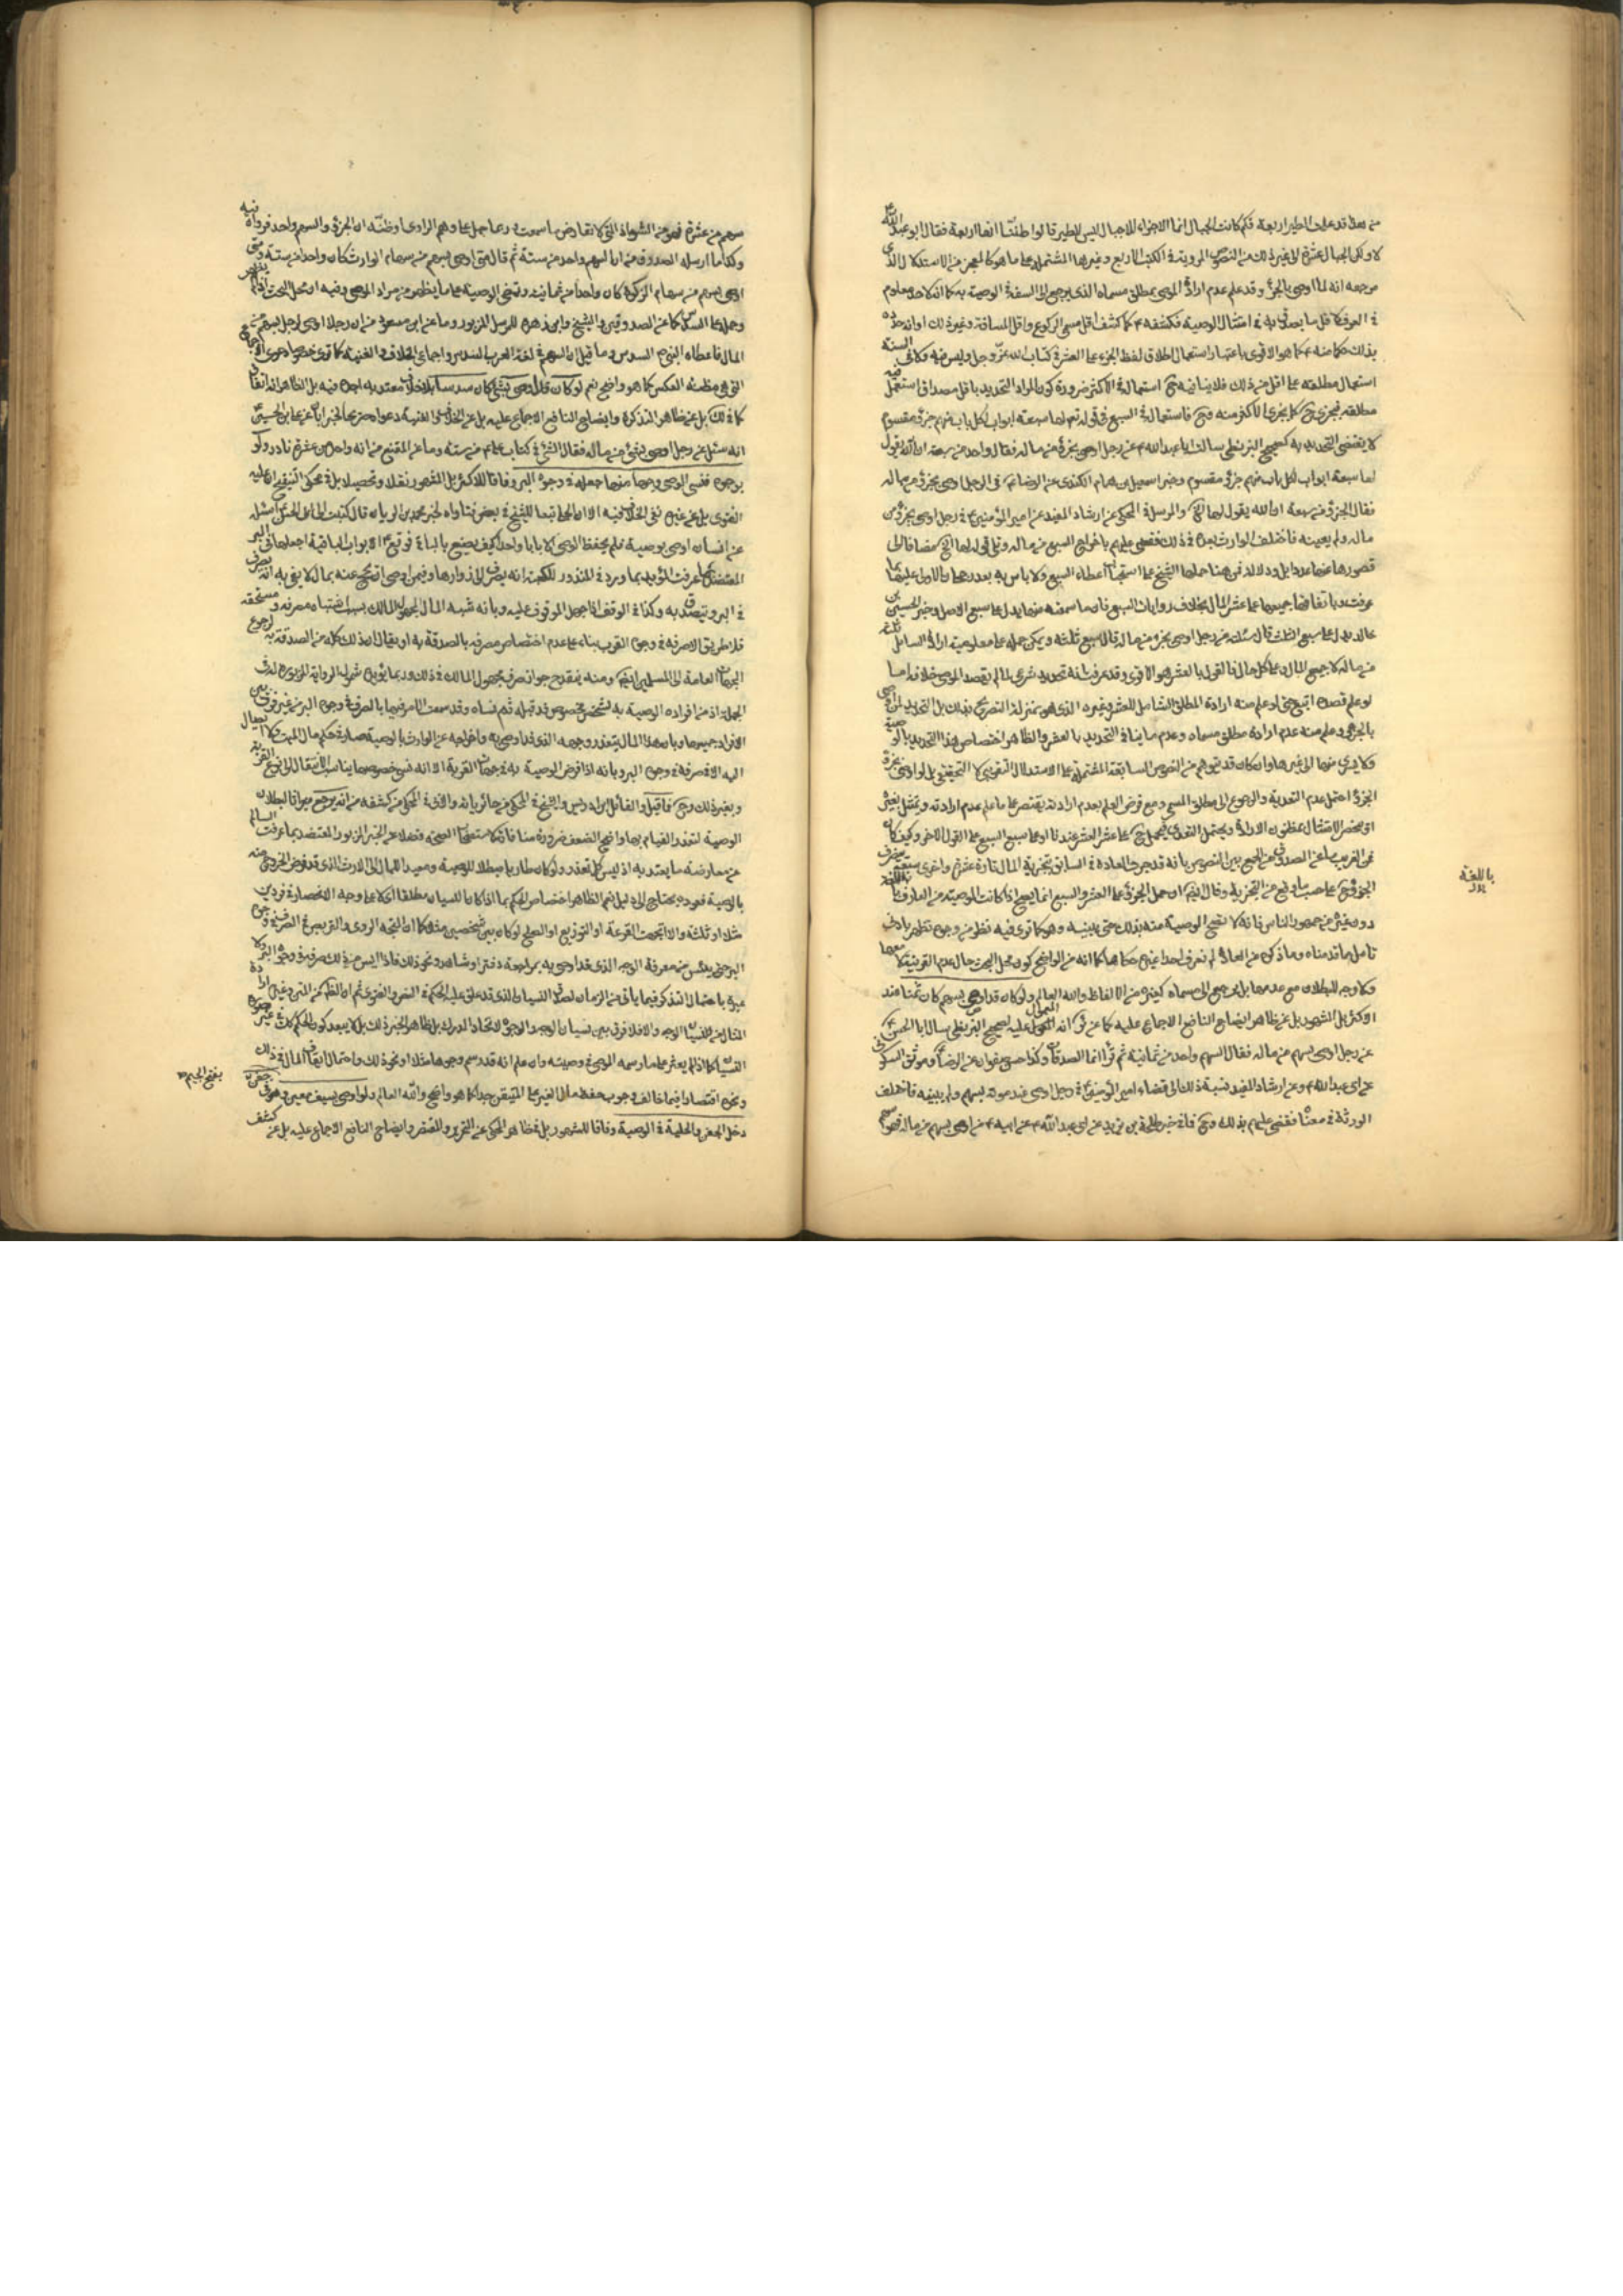 من بعد قد علمت الطير اربعة فكم كانت الجبال انما الاجزاء للاجبال ليس للطير قالوا ظننا انها اربعة فقال ابو عبد الله ع
لا ولكن الجبال عشرة الى غير ذلك من النصوص المروية في الكتب الاربع وغيرها المشتملة على ما هو كالمعجز من الاستدلال الذى
مرجعه انه لما اوصى بالجزء وقد علم عدم ارادة الموصى بمطلق مسماه الذى يرجع الى السفه في الوصية به كما انه لا حد معلوم
في العرف لاقل ما يصدق به في امتثال الوصية فكشفه ع كما كشف اقل مسمى الركوع واقل المسافة وغير ذلك او انه حده
بذلك حكما منه ع كما هو الاقوى باعتبار استعمال اطلاق لفظ الجزء على العشر في كتاب الله عز وجل وليس فيه ولا في السنة
استعمال مطلقه على اقل من ذلك فلا ينافيه ح استعماله في الاكثر ضرورة كون المراد التحديد باقل مصداق استعمل فيه
مطلقه فيجزى ح كما يجزى الاكثر منه وح فاستعماله في السبع في قوله تع لها سبعة ابواب لكل باب منهم جزء مقسوم
لا يقتضى التحديد به كصحيح البزنطى سالت ابا عبد الله ع عن رجل اوصى بجزء من ماله فقال واحد من سبعة ان الله يقول
لها سبعة ابواب لكل باب منهم جزء مقسوم وخبر اسمعيل بن همام الكندى عن الرضا ع في الرجل اوصى بجزء من ماله
فقال الجزء من سبعة ان الله يقول لها الخ والمرسل في المحكى عن ارشاد المفيد عن امير المؤمنين ع في رجل اوصى بجزء من
ماله ولم يعينه فاختلف الوارث بعده في ذلك فقضى عليهم باخراج السبع من ماله وتلى قوله لها الخ مضافا الى
قصورها عنها عددا بل ودلالة فمن هنا حملها الشيخ على استحباب اعطاء السبع ولا باس به بعد رجحان الاول عليها بما
عرفت وباتفاقها جميعها على عشر المال بخلاف روايات السبع فان ما سمعته منها يدل على سبع الاصل وخبر الحسين بن
خالد يدل على سبع الثلث قال سئلته عن رجل اوصى بجزء من ماله قال سبع ثلثه ويمكن حمله على معلومية ارادة السائل ثلثه
من ماله لا جميع المال وعلى كل حال فالقول بالعشر هو الاقوى وقد عرفت انه تحديد شرعى لما لم يقصد الموصى خلافه اما
لو علم قصده اتبع حتى لو علم منه ارادة المطلق الشامل للعشر وغيره الذى هو بمنزلة التصريح بذلك بل التحديد لمن اوصى
بالجزء وعلم منه عدم ارادة مطلق مسماه وعدم ما ينافي التحديد بالعشر والظاهر اختصاص هذا التحديد بالوصية
فلا يسرى منها الى غيرها وان كان قد يتوهم من النصوص السابقة المشتملة على الاستدلال التقريبى لا التحقيقى بل لو اوصى بجزء
الجزء احتمل عدم التعدية والرجوع الى مطلق المسمى ومع فرض العلم بعدم ارادته يقتصر على ما علم عدم ارادته ويمتثل بغيره
او يختص الامتثال بمظنون الارادة ويحتمل التعدى فيحمل ح على عشر العشر عندنا او على سبع السبع على القول الاخر وكيف كان
فمن الغريب ما عن الصدوق من الجمع بين النصوص بانه قد جرت العادة في السابق بتجزية المال تارة عشرة واخرى سبعة فيصرف
الجزء ح على حسب ما وقع من التجزية وقال ايضا ان حمل الجزء على العشر والسبع انما يصح اذا كانت الوصية من العارف باللغة
دون غيره من جمهور الناس فانه لا تصح الوصية منه بذلك حتى يبينه وهو كما ترى فيه نظر من وجوه تظهر بادنى
تامل ما قدمناه وما ذكره من العادة لم نعرف احدا غيره حكاها كما انه من الواضح كون محل البحث حال عدم القرينة لا معها
ولا وجه للبطلان مع عدمها بل يرجع الى مسماه كغيره من الالفاظ والله العالم ولو كان قد اوصى بسهم كان ثمنا عند
الاكثر بل المشهور بل عن ظاهر ايضاح النافع الاجماع عليه كما عن كره انه المعول عليه لصحيح البزنطى سال ابا الحسن ع
عن رجل اوصى بسهم من ماله فقال السهم واحد من ثمانية ثم قرأ انما الصدقات وكذا حسن صفوان عن الرضا ع وموثق السكونى
عن ابى عبد الله ع وعن ارشاد المفيد نسبة ذلك الى قضاء امير المؤمنين ع في رجل اوصى عند موته بسهم ولم يبينه فاختلف
الورثة في معناه فقضى عليهم بذلك وح فما في خبر طلحة بن زيد عن ابى عبد الله ع عن ابيه ع من اوصى بسهم من ماله فهو سهم
باللغة
سهم من عشرة فهو من الشواذ التى لا تعارض ما سمعت وربما حمل على وهم الراوى او ظنه ان الجزء والسهم واحد فرواه فيه
وكذا ما ارسله الصدوق من ان السهم واحد من ستة ثم قال متى اوصى بسهم من سهام الوارث كان واحدا من ستة ومتى
اوصى بسهم من سهام الزكوة كان واحدا من ثمانية وتمضى الوصية على ما يظهر من مراد الموصى وفيه ان محل البحث اذا لم يظهر
المال فاعطاه النبى ص السدس وما قيل ان السهم في لغة العرب السدس واجماعى الخلاف والغنية كما ترى خصوصا دعوى الاجماع
انه سئل عن رجل اوصى بشئ من ماله فقال الشئ في كتاب على ع من ستة وما عن المقنع من انه واحد من عشرة نادر ولو
بوجوه فنسى الوصى وجها منها جعله في وجوه البر وفاقا للاكثر بل المشهور نقلا وتحصيلا بل في محكى التنقيح ان عليه
الفتوى بل عن غيره نفى الخلاف فيه الا ان الحلى تبعا للشيخ في بعض فتاواه لخبر محمد بن الريان قال كتبت الى ابى الحسن ع اسئله
عن انسان اوصى بوصية فلم يحفظ الوصى الا بابا واحدا كيف يصنع بالباقى فوقع ع الابواب الباقية اجعلها في البر
المعتضد بما عرفت المؤيد بما ورد في المنذور للكعبة انه يصرف الى زوارها وفيمن اوصى ان يحج عنه بمال لا يفى به انه يصرف
في البر ويتصدق به وكذا في الوقف اذا جهل الموقوف عليه وبانه شبه المال المجهول المالك بسبب اشتباه مصرفه ومستحقه
فلا طريق الا صرفه في وجوه القرب بناء على عدم اختصاص مصرفه بالصدقة به او يقال ان ذلك كله من الصدقة به لرجوع
الجهات العامة الى المسلمين ايضا ومنه ينقدح جواز صرف مجهول المالك في ذلك وربما يؤيده شمول الرواية المزبورة له في
الجملة اذ من افراده الوصية به لشخص مخصوص قد قبله ثم نساه وقد سمعت الامر فيها بالصرف في وجوه البر من غير فرق بين
الافراد جميعها وبان هذا المال يتعذر وجهه الذى قد اوصى به واخراجه عن الوارث بالوصية صار في حكم مال الميت ولا ايصال
اليه الا صرفه في وجوه البر وبانه اذا فرض الوصية به في جهات القربة الا انه نسى خصوصها يناسب الانتقال الى نوع القربة
وبغير ذلك وح فما قيل والقائل ابن ادريس والشيخ في المحكى من حائرياته والابى في المحكى من كشفه من انه يرجع ميراثا لبطلان
الوصية لتعذر القيام بها واضح الضعف ضرورة منافاته لاستصحاب الصحة فضلا عن الخبر المزبور المعتضد بما عرفت السالم
عن معارضة ما يعتد به اذ ليس كل تعذر ولو كان طاريا مبطلا للوصية ومعيدا للمال الى الارث الذى قد فرض الخروج عنه
بالوصية فعوده محتاج الى دليل نعم الظاهر اختصاص الحكم بما اذا كان النسيان مطلقا اى لا على وجه الانحصار في فردين
مثلا او ثلثة والا اتجهت القرعة او التوزيع او الصلح لو كان بين شخصين مثلا كما ان المتجه التروى والتربص في الصرف في وجوه
البر حتى يئس من معرفة الوجه الذى قد اوصى به بمراجعة دفتر او شاهد ونحو ذلك فاذا ايس من ذلك صرفه في وجوه البر ولا
عبرة باحتمال التذكر فيما ياتى من الزمان لصدق النسيان الذى قد علق عليه الحكم في النص والفتوى ثم ان الظاهر من النص وغيره ارادة
ونحوه اقتصارا فيما خالف وجوب حفظ مال الغير على المتيقن جدا كما هو واضح والله العالم ولو اوصى بسيف معين وهو في جفن
دخل الجفن والحلية في الوصية وفاقا للمشهور بل في ظاهر المحكى عن التحرير والمقتصر وايضاح النافع الاجماع عليه بل عن كشف
بفتح الجيم